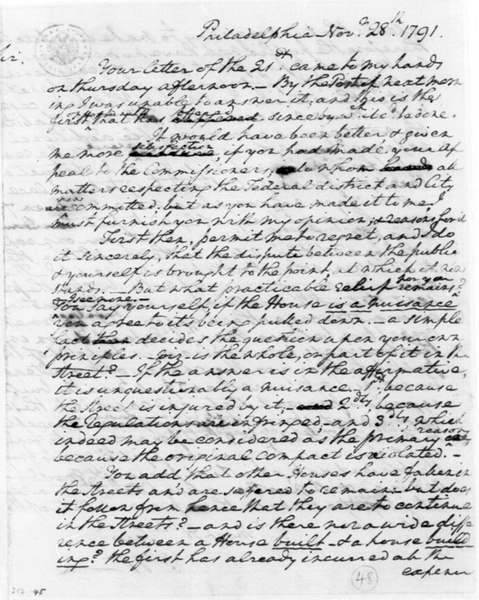 Philadelphia Novr. 28th 1791.
Sir.
Your letter of the 21st came to my hands
on thursday afternoon – By the Post of next morn
ing I was unable to answer it, and this is the
first that has since by wch it cd be done.
It would have been better & given
me more satisfaction, if you had made your ap
peal to the Commissioners, to whom all
matters respecting the Federal district and City
are committed; but as you have made it to me I
must furnish you with my opinion, & reasons for it
First then, permit me to regret, and I do
it sincerely, that the dispute between the public
& yourself is brought to the point, at which it now
stands. – But what practicable relief remains for you
I see none –
You say yourself, if the House is a nuisance
you agree to its being pulled down – a simple
fact decides the question upon your own
principles. – Is the whole, or part of it in the
street? – If the answer is in the affirmative,
it is unquestionably a nuisance, 1st because
the street is injured by it, – 2dly because
the regulations are infringed – and 3dly which
indeed may be considered as the primary reason
because the original compact is violated. –
You add that other Houses have fallen in
the streets and are suffered to remain – but does
it follow from hence that they are to continue
in the streets? – and is there not a wide diffe
rence between a House built & a house build
ing? the first has already incurred all the
expence
48